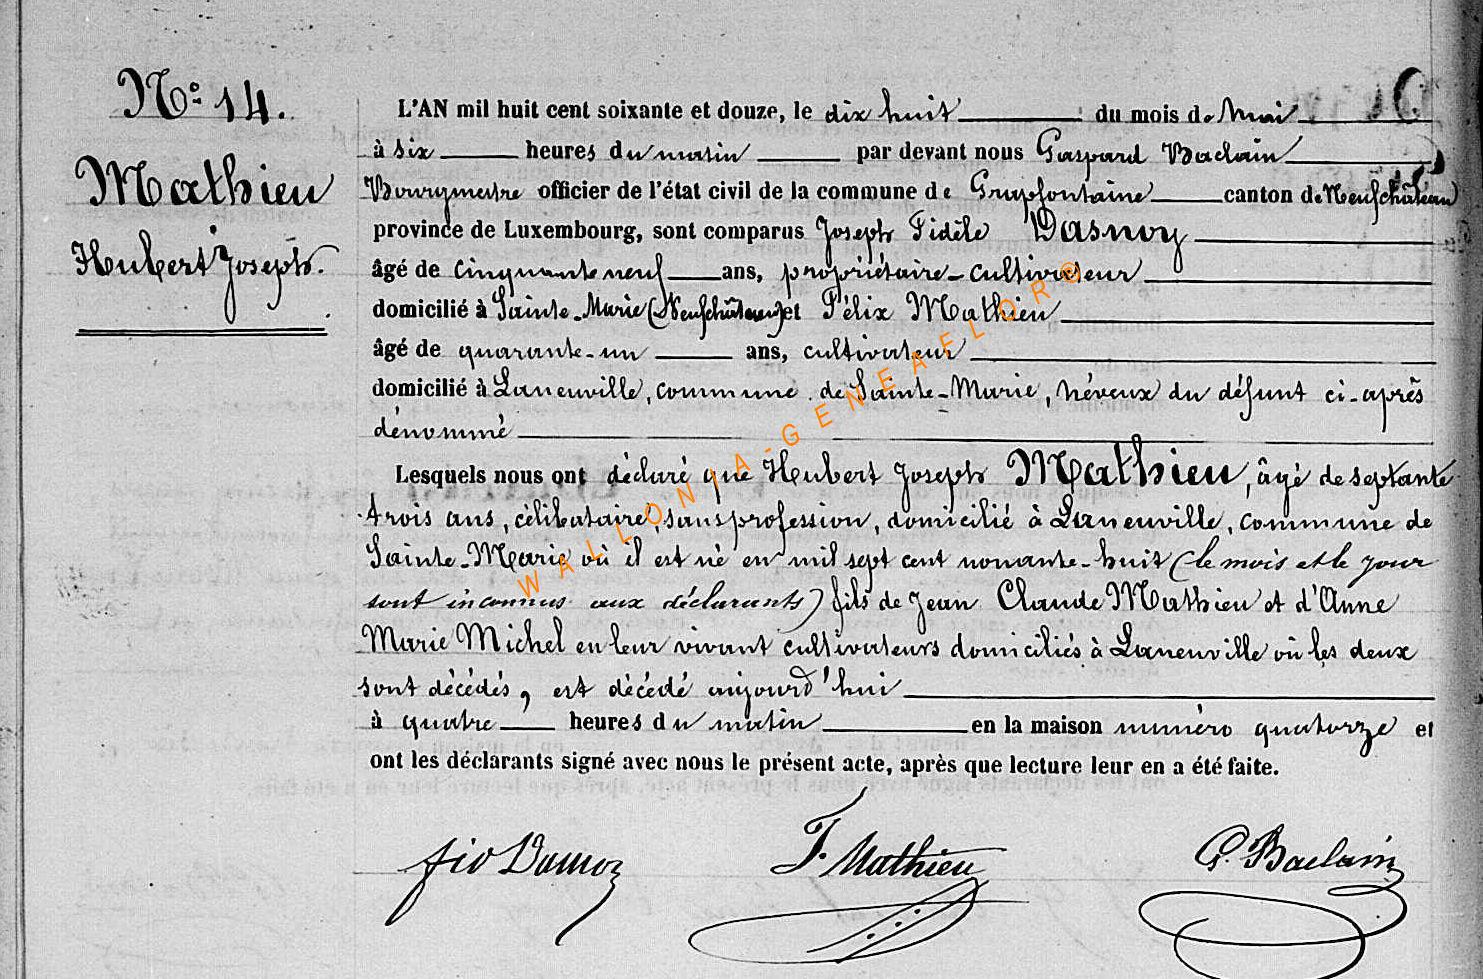 No. 14.
Mathieu
Hubert Joseph.
L'AN mil huit cent soixante et douze, le dix huit du mois de Mai
à six heures du matin par devant nous Gaspard Baclain
Bourgmestre officier de l'état civil de la commune de Grapfontaine canton de Neufchâteau
province de Luxembourg, sont comparus Joseph Fidèle Dasnoy
âgé de cinquante neuf ans, propriétaire-cultivateur
domicilié à Sainte-Marie (Neufchâteau) et Félix Mathieu
âgé de quarante-un ans, cultivateur
domicilié à Laneuville, commune de Sainte-Marie, néveux du défunt ci-après
dénommé
Lesquels nous ont déclaré que Hubert Joseph Mathieu, âgé de septante
trois ans, célibataire, sans profession, domicilié à Laneuville, commune de
Sainte-Marie où il est né en mil sept cent nonante-huit (le mois et le jour
sont inconnus aux déclarants) fils de Jean Claude Mathieu et d'Anne
Marie Michel en leur vivant cultivateurs domiciliés à Laneuville où les deux
sont décédés, est décédé aujourd'hui
à quatre heures du matin en la maison numéro quatorze et
ont les déclarants signé avec nous le présent acte, après que lecture leur en a été faite.
F. Mathieu G. Baclain
WALLONIA-GENEAFLOR®